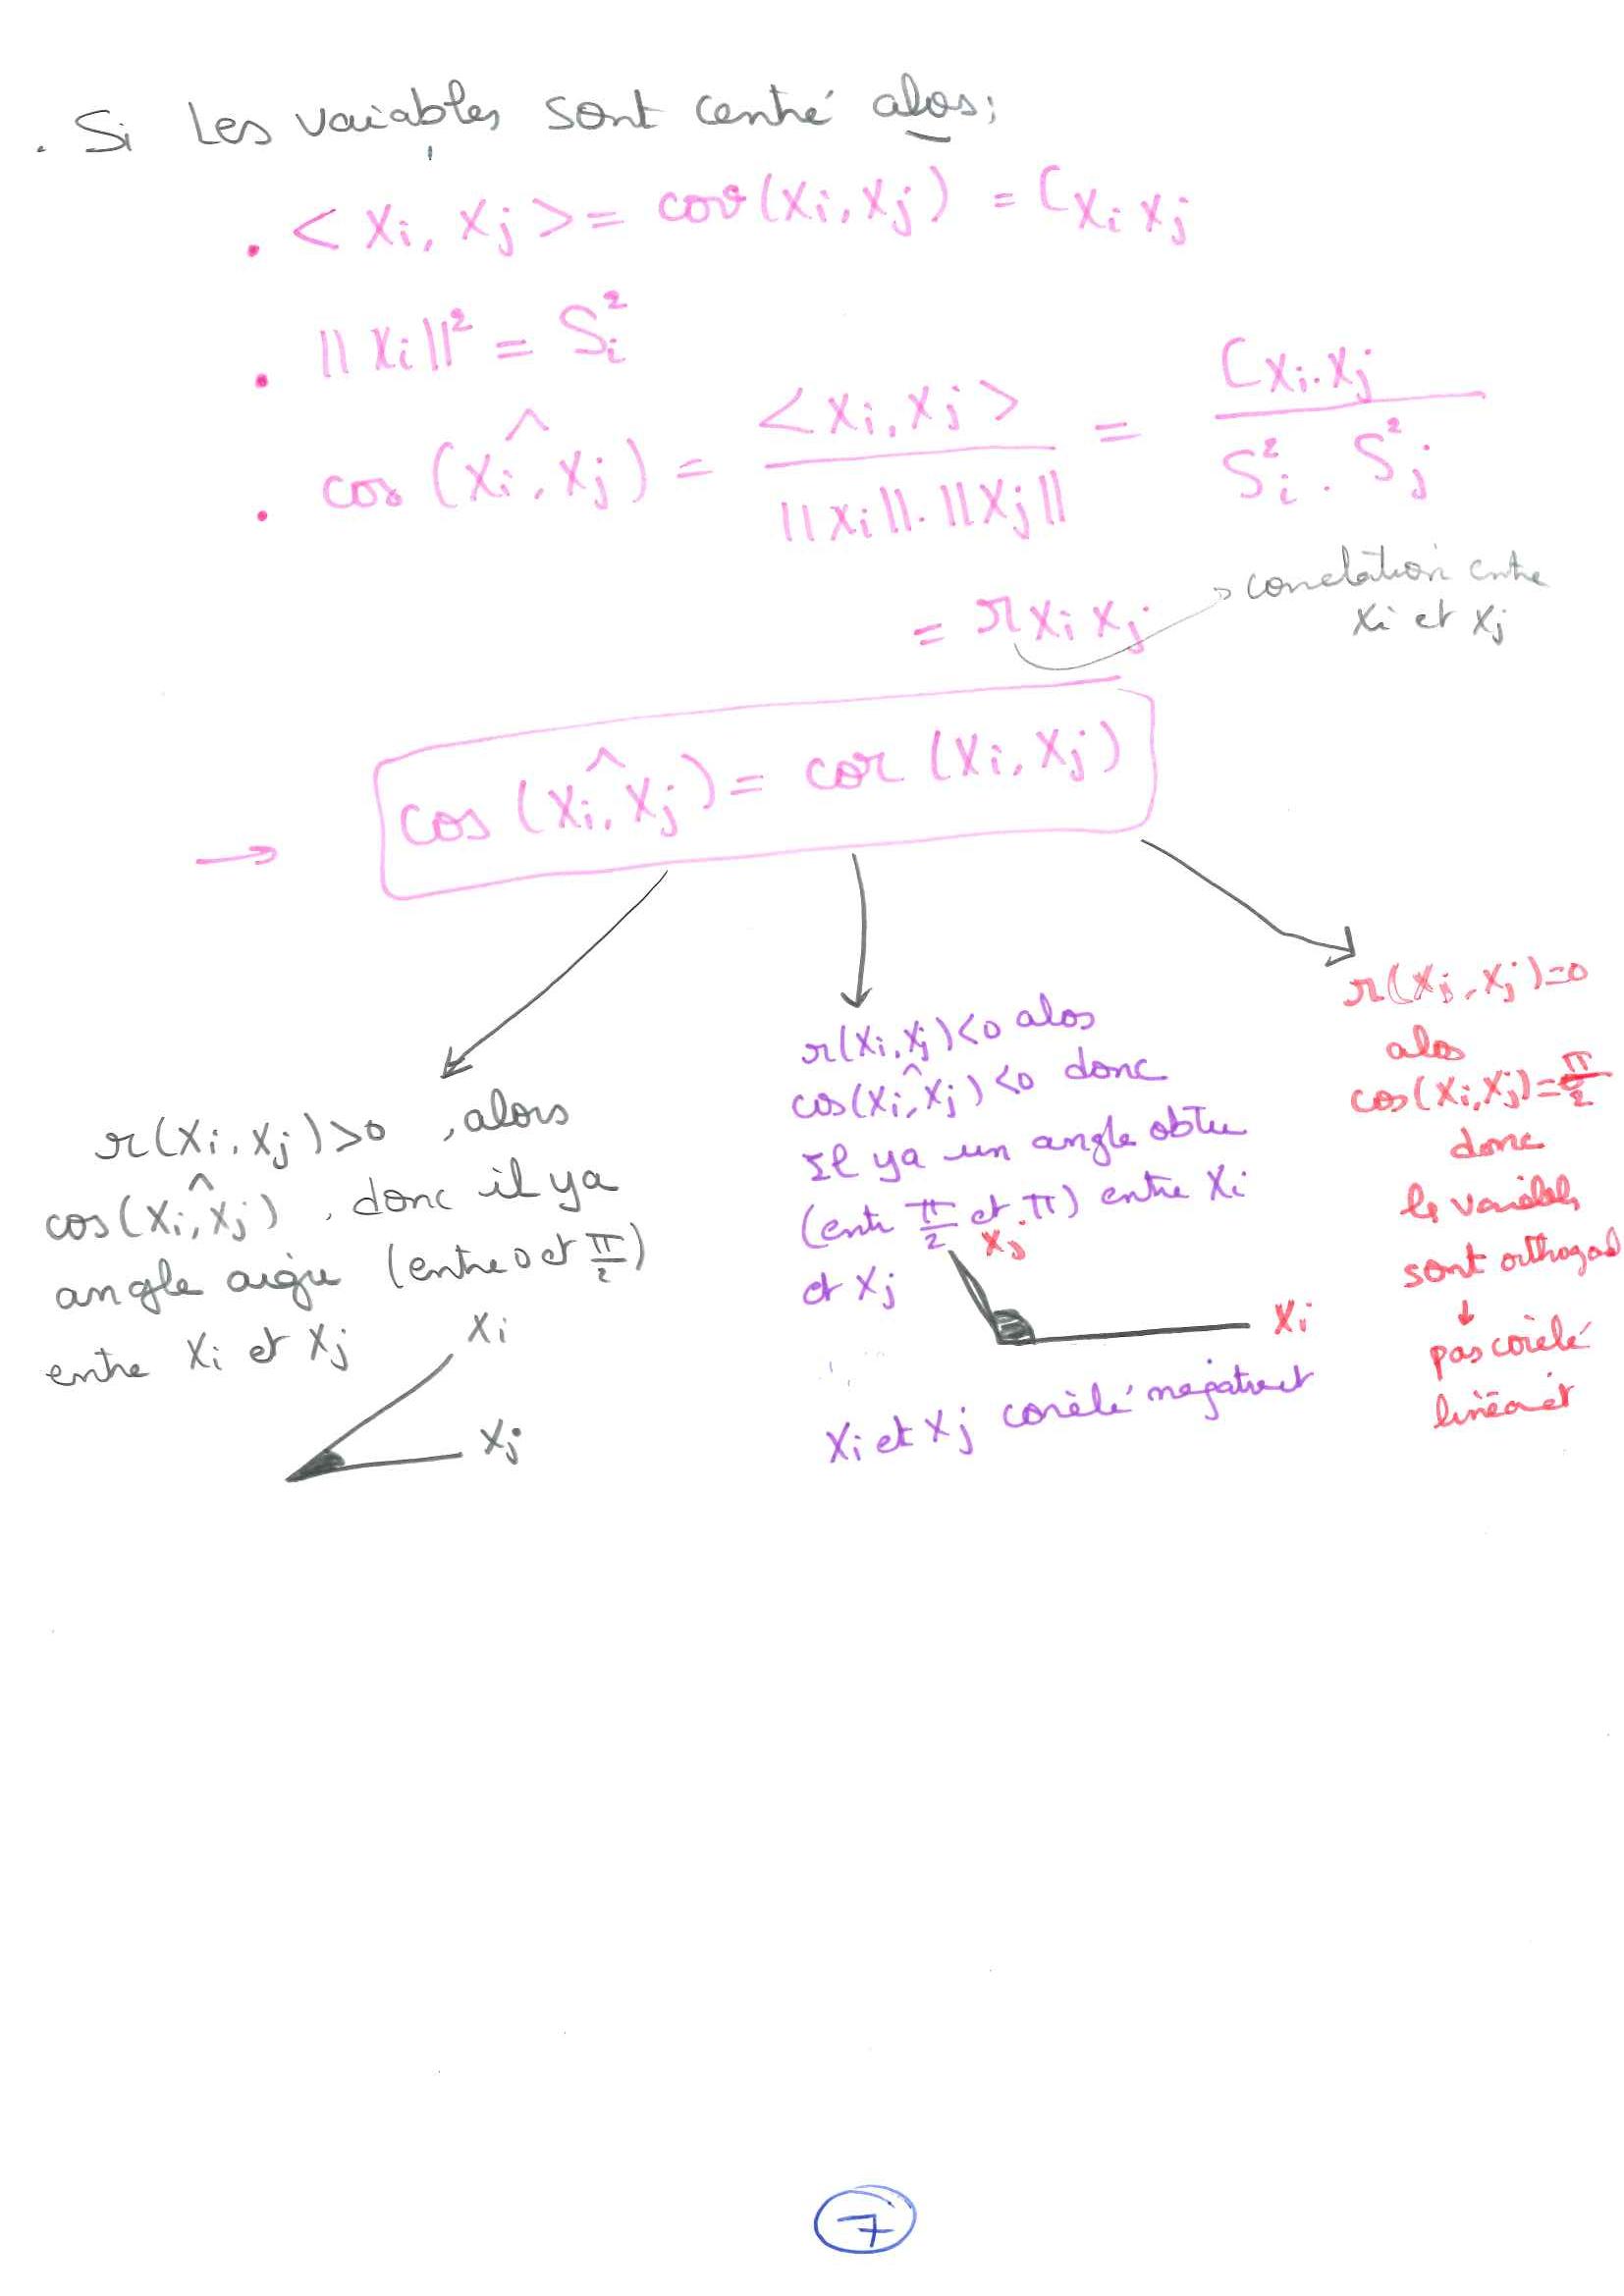 . Si Les vaiables sont centré alos;
. < Xi, Xj > = cov(Xi, Xj) = CXiXj
. ||Xi||² = Si²
. cos(Xi^,Xj) = <Xi, Xj> / ||Xi||.||Xj|| = CXi.Xj / Si² . Sj²
= rXiXj → correlation entre
Xi et Xj
→ cos(Xi^,Xj) = cor(Xi, Xj)
r(Xi, Xj)>0 , alors
cos(Xi^,Xj) , donc il ya
angle aigu (entre 0 et π/2)
entre Xi et Xj
Xi
Xj
r(Xi, Xj)<0 alos
cos(Xi^,Xj)<0 donc
Il ya un angle obtu
(entr π/2 et π) entre Xi
et Xj
Xj
Xi
Xi et Xj corélé
r(Xi, Xj)=0
alos
cos(Xi,Xj)=π/2
donc
sont
↓
pas corélé
7